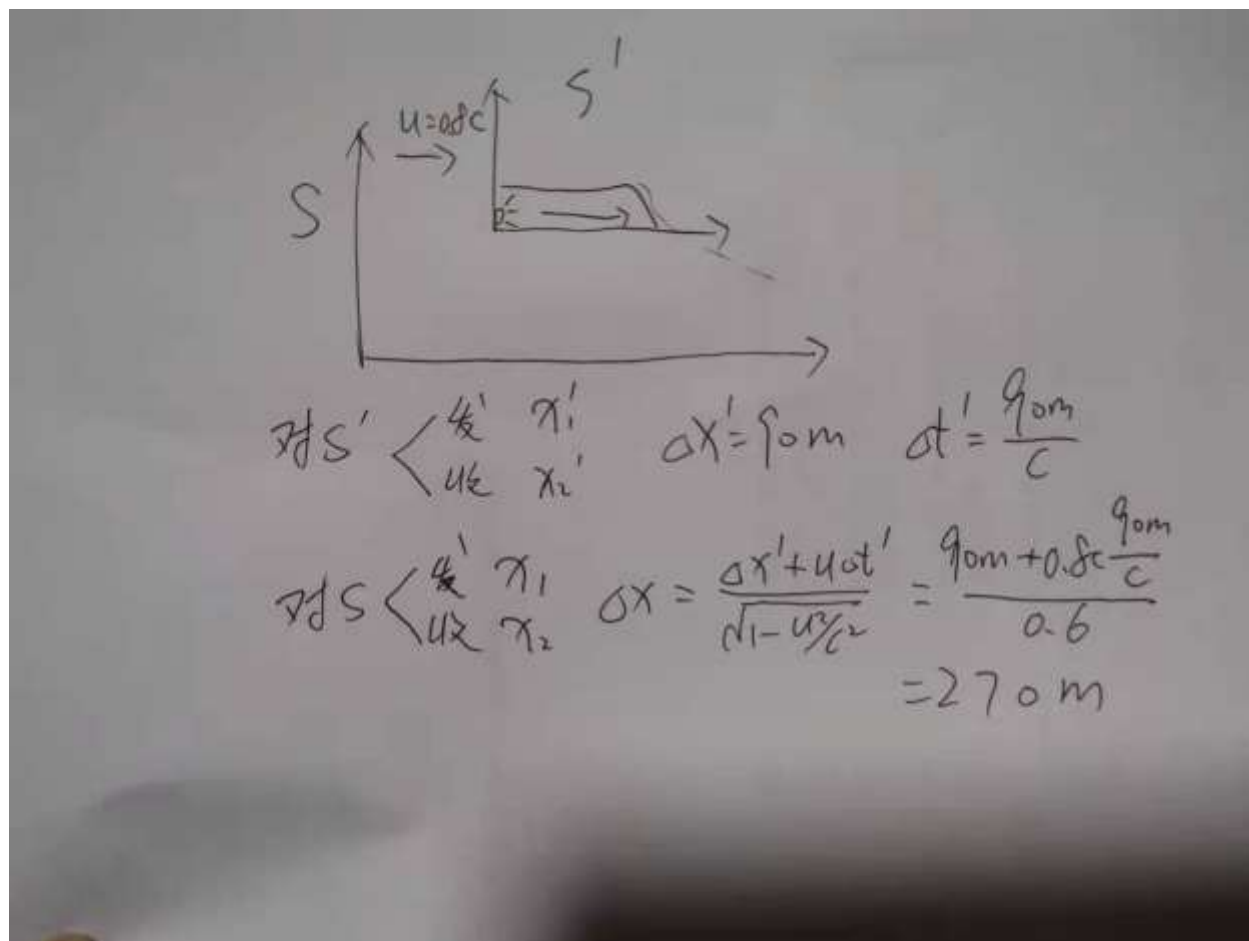 S'
u=0.8c
S
对S' 发' x₁' Δx'=90m Δt'=90m/c
收 x₂'
对S 发' x₁ Δx = (Δx'+uΔt')/√(1-u²/c²) = (90m+0.8c 90m/c)/0.6
收 x₂
=270m